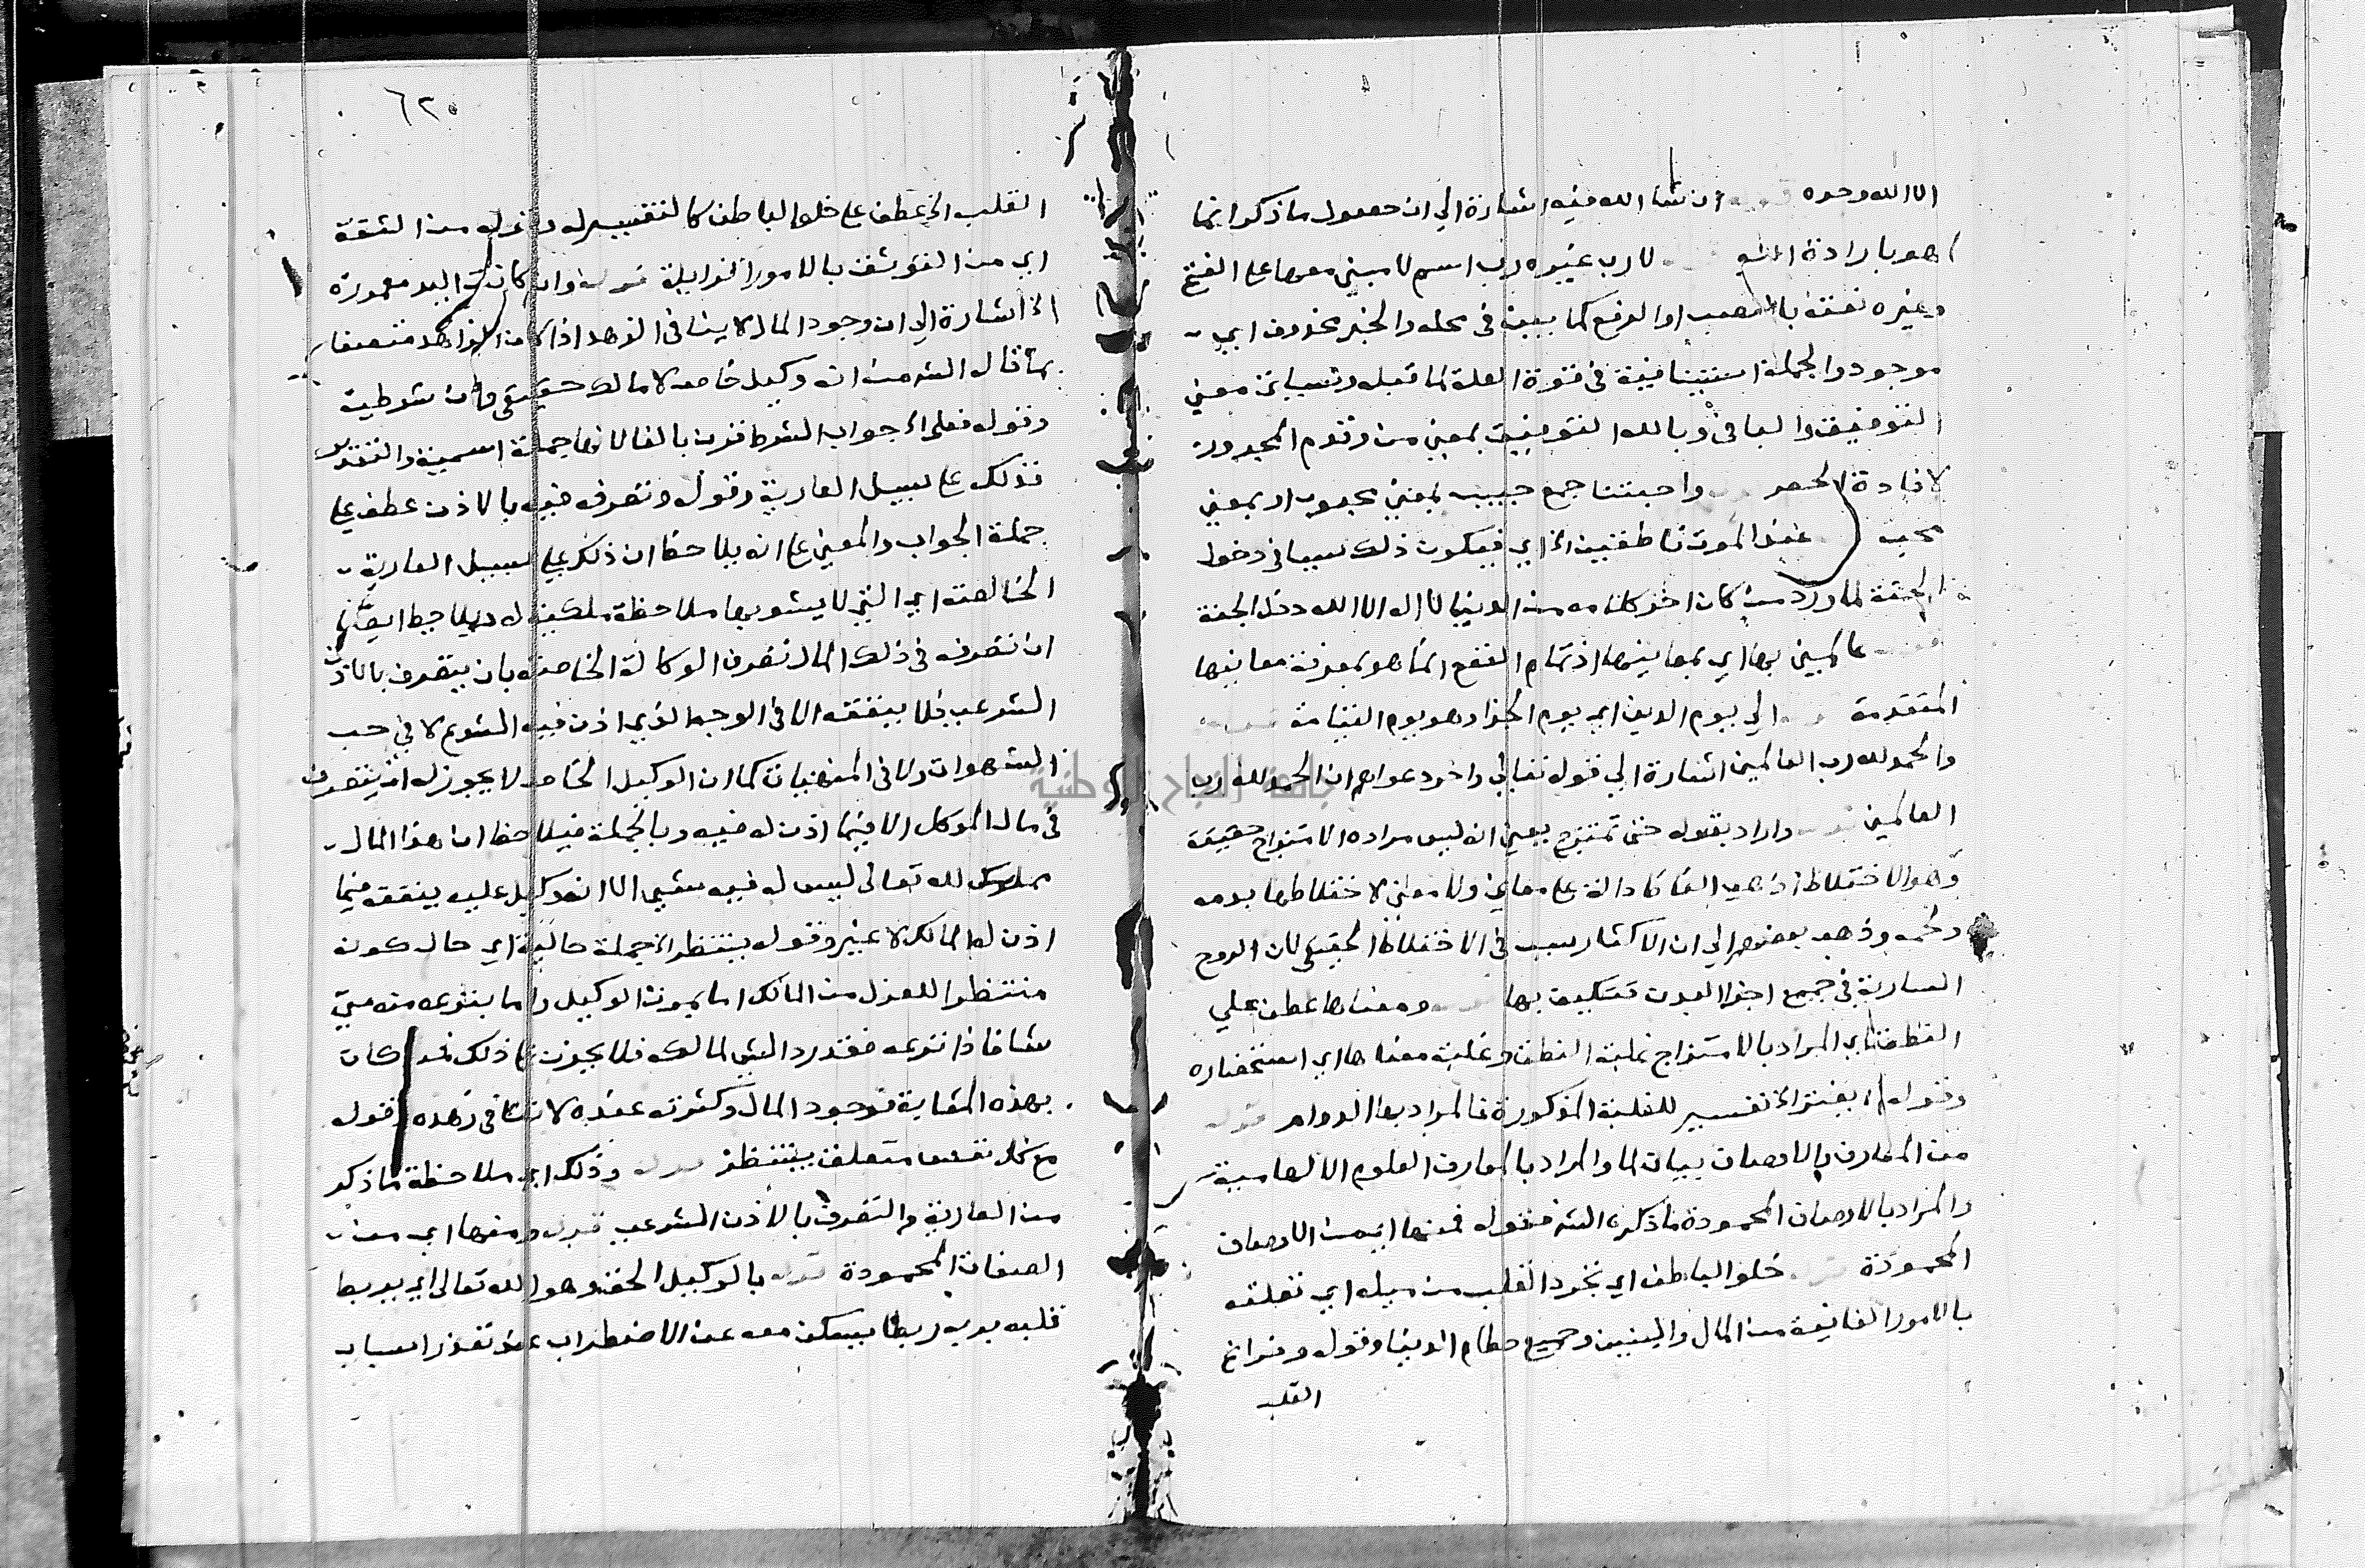 الا الله وحده ان شا الله فيه اشارة الي ان حصول ما ذكر انما
هو بارادة الله لا رب غيره رب اسم لا مبني معها علي الفتح
وغيره نعته بالنصب او الرفع كما بين في محله والخبر محذوف اي
موجود والجملة استينافية في قوة العلة لما قبله وسياتي معني
التوفيق والبا في وبالله التوفيق بمعني من وقدم المجرور
لافادة الحصر واحبتنا جمع حبيب بمعني محبوب او بمعني
محب عند الموت ناطقين الخ اي فيكون ذلك سببا في دخول
الجنة لما ورد من كان اخر كلامه من الدنيا لا اله الا الله دخل الجنة
عالمين بها اي بمعانيها اذ تمام النفع انما هو بمعرفة معانيها
المتقدمة الي يوم الدين اي يوم الجزا وهو يوم القيامة
والحمد لله رب العالمين اشارة الي قوله تعالي واخر دعواهم ان الحمد لله رب
العالمين واراد بقوله حتي تمتزج يعني انه ليس مراده الامتزاج حقيقة
وهو الاختلاط اذ هي الفاظ دالة علي معاني ولا معني لاختلاطها بدمه
ولحمه وذهب بعضهم الي ان الاكثار سبب في الاختلاط الحقيقي لان الروح
السارية في جميع اجزا البدن تتكيف بها ومعناها عطف علي
النطق اي المراد بالامتزاج غلبة النطق وغلبة معناها اي استحضاره
وقوله تفسير للغلبة المذكورة فالمراد بها الدوام قوله
من المعارف والاوصاف بيان لما والمراد بالمعارف العلوم الالهامية
والمراد بالاوصاف المحمودة ما ذكره الش فقوله فمنها اي من الاوصاف
المحمودة خلو الباطن اي تجرد القلب من ميله اي تعلقه
بالامور الفانية من المال والبنين وجميع حطام الدنيا وقوله وفراغ
القلب
٦٢٠
القلب الخ عطف علي خلو الباطن كالتفسير له وقوله من الثقة
اي من التوثق بالامور الزوايلة قوله وان كانت اليد معمورة
الخ اشارة الي ان وجود المال لا ينافي الزهد اذا كان الزاهد متصفا
بما قال الش من انه وكيل خاص لا مالك حقيقي وان شرطية
وقوله فعلي الخ جواب الشرط قرن بالفا لانها جملة اسمية والتقدير
فذلك علي سبيل العارية وقوله وتصرفه فيه بالاذن عطف علي
جملة الجواب والمعني علي انه يلاحظ ان ذلك علي سبيل العارية
الخالصة اي التي لا يشوبها ملاحظة ملكيته له ويلاحظ ايضا
ان تصرفه في ذلك المال تصرف الوكالة الخاصة بان يتصرف بالاذن
الشرعي فلا ينفقه الا في الوجه الذي اذن فيه الشرع لا في حب
الشهوات ولا في المنهيات كما ان الوكيل الخاص لا يجوز له ان يتصرف
في مال الموكل الا فيما اذن له فيه وبالجملة فيلاحظ ان هذا المال
مملوك لله تعالي ليس له فيه شي الا انه وكيل عليه ينفقه فيما
اذن له المالك لا غير وقوله ينتظر الخ جملة حالية اي حال كونه
منتظرا للعزل من المالك اما بموت الوكيل واما بنزعه منه متي
شا فاذا نزعه فقد رد الشي لمالكه فلا يحزن علي ذلك فمن كان
بهذه المثابة فوجود المال وكثرته عنده لا تنافي زهده وقوله
مع كل نفس متعلق بينتظر قوله وذلك اي ملاحظة ما ذكر
من العارية والتصرف بالاذن الشرعي قوله ومنها اي من
الصفات المحمودة قوله بالوكيل الحق وهو الله تعالي اي يربط
قلبه بربه ربطا يسكن معه عن الاضطراب عند تعذر اسباب
جامعة النجاح الوطنية